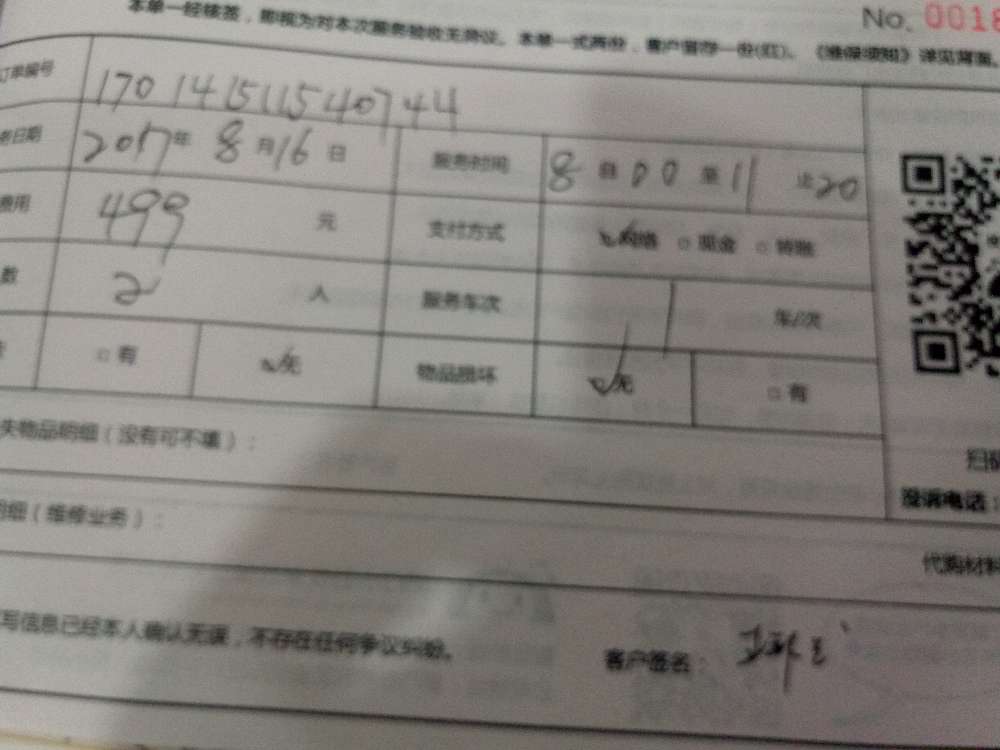 本单一经核签，即视为对本次服务验收无异议。本单一式两份，客户留存一份(红)。《维保须知》详见背面。
No. 0018
订单编号 170141511540744
日期 2017年 8月16日 服务时间 8 自 00 至 11 止20
费用 499 元 支付方式 ☑网络 □现金 □转账
数 2 人 服务车次 1 车/次
□有 ☑无 物品损坏 ☑无 □有
失物品明细（没有可不填）：
投诉电话：
明细（维修业务）：
代购材料
写信息已经本人确认无误，不存在任何争议纠纷。 客户签名：